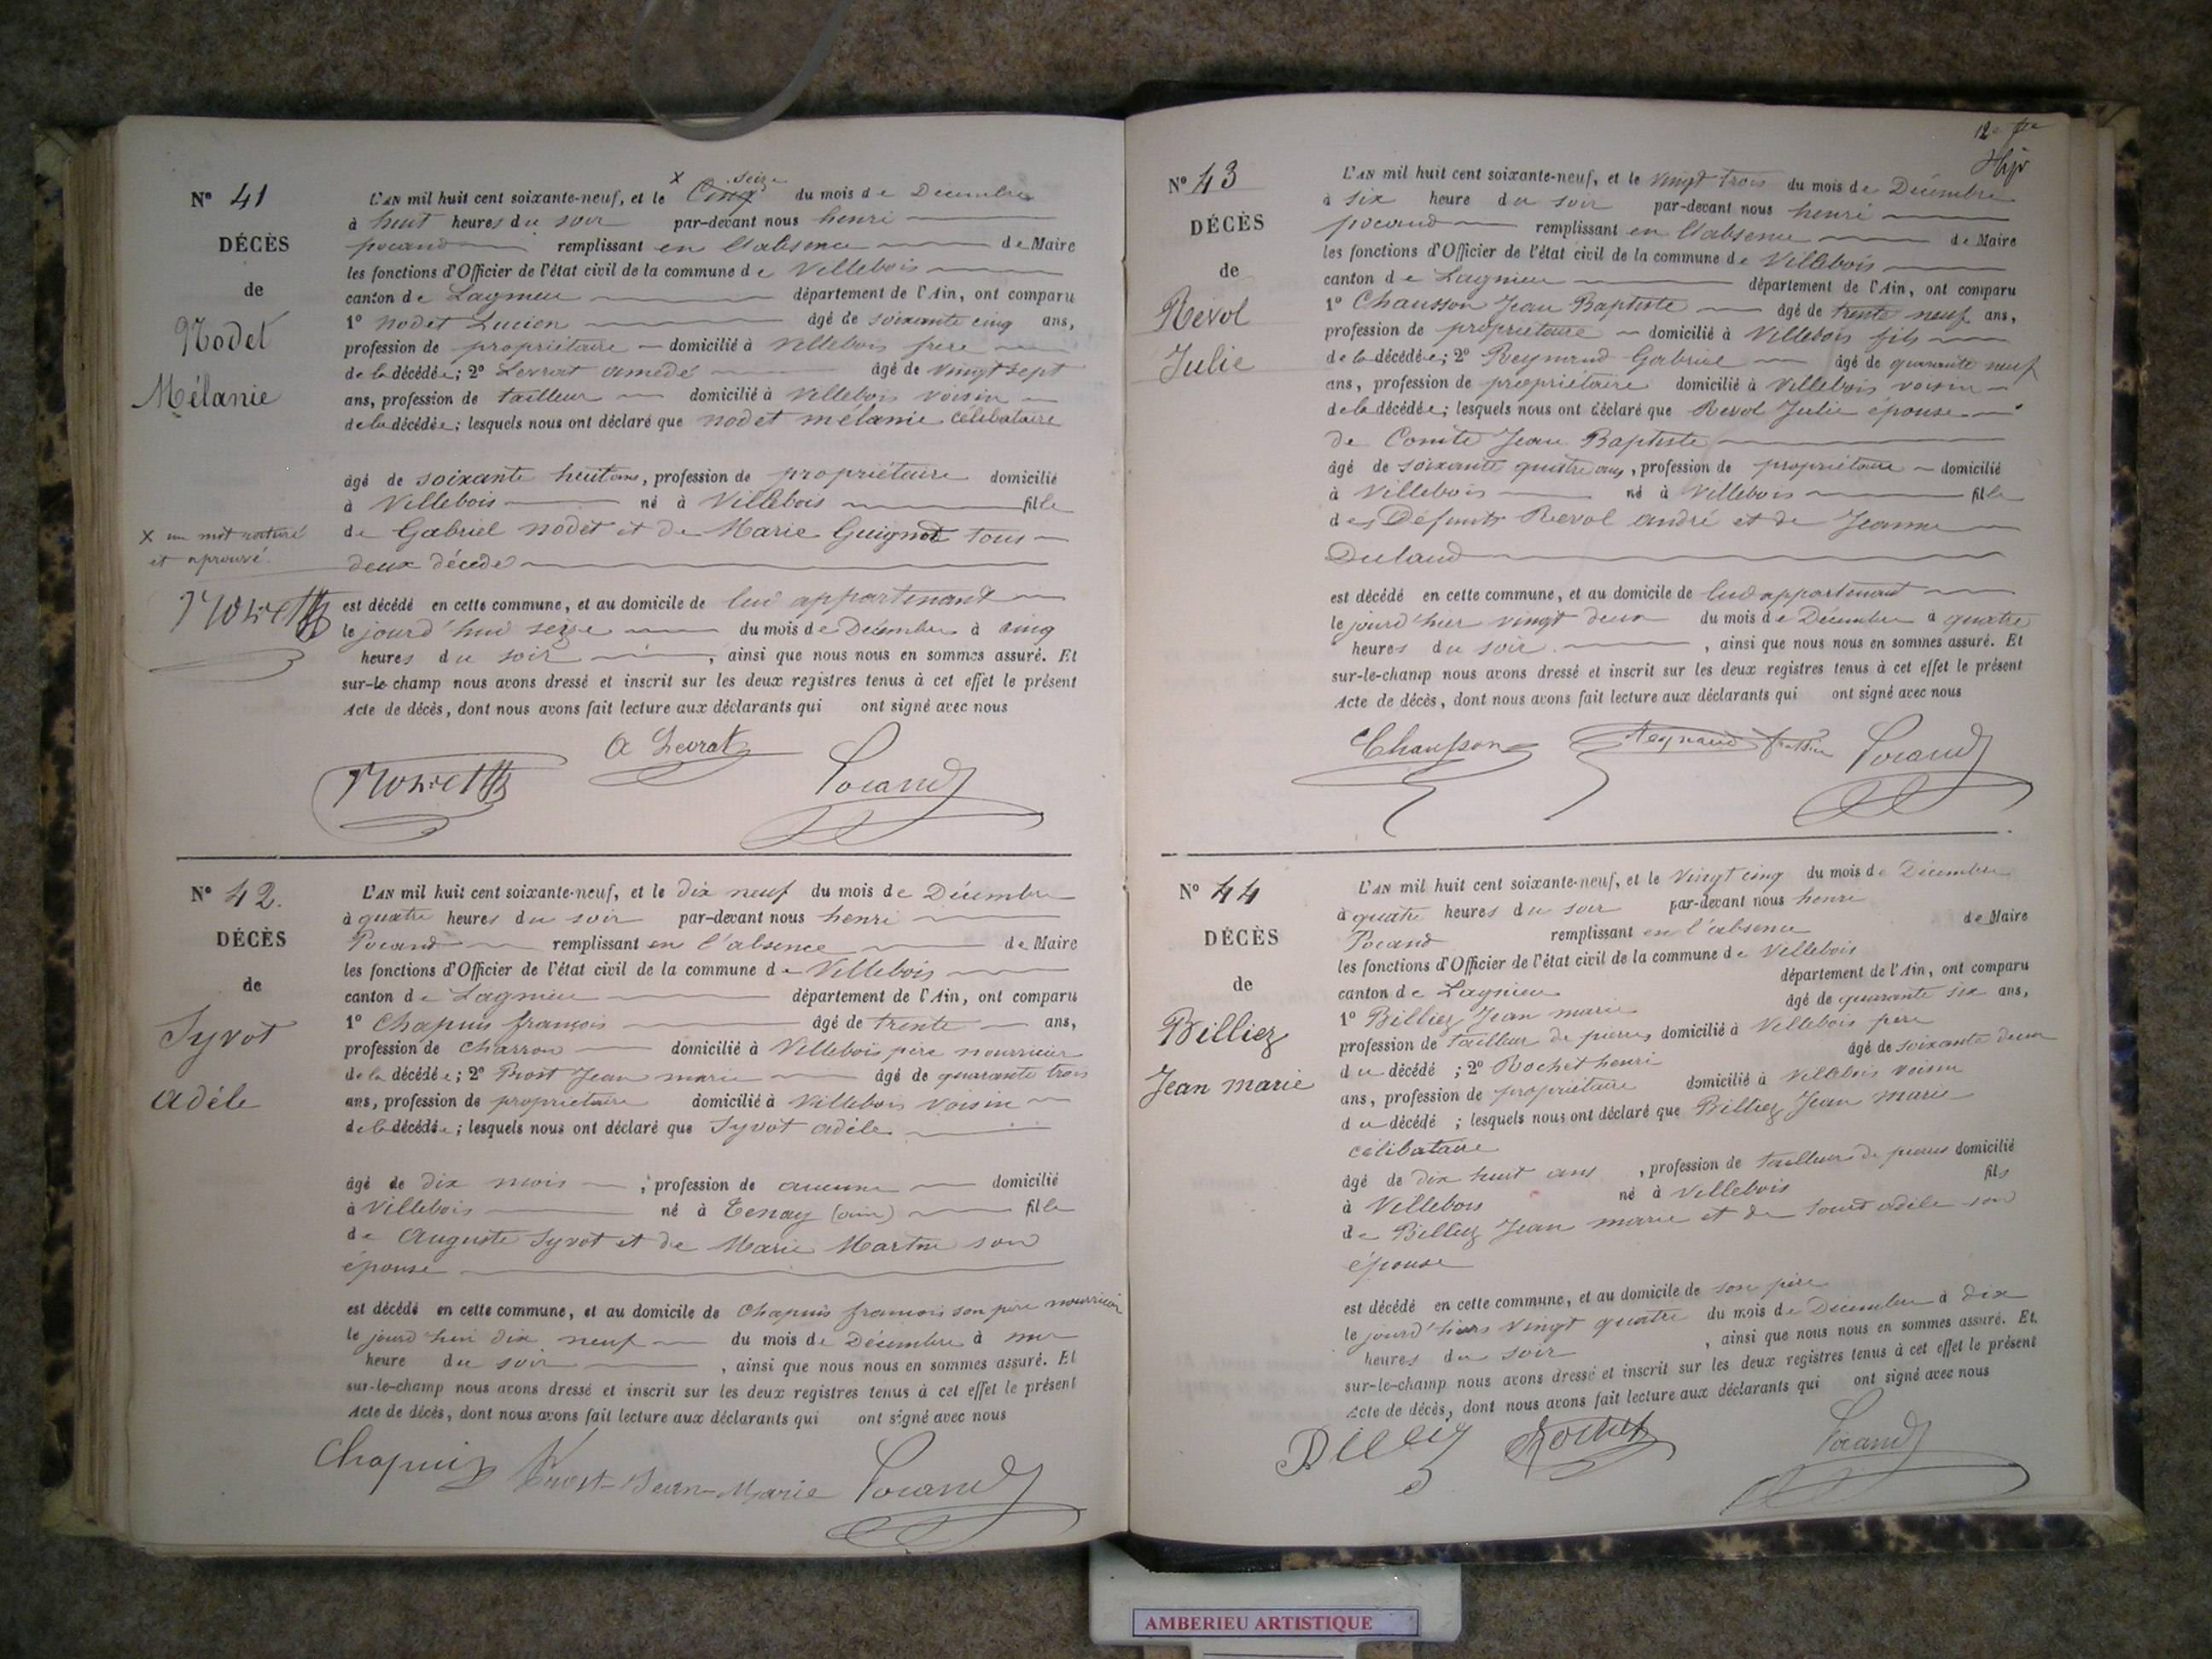 Nº 41
DÉCÈS
de
Nodet
Mélanie
X un mot raturé
et aprouvé.
L'AN mil huit cent soixante-neuf, et le X Cinq seize du mois de Décembre
à huit heures du soir par-devant nous henri
pocand remplissant en l'absence de Maire
les fonctions d'Officier de l'état civil de la commune de Villebois
canton de Lagnieu département de l'Ain, ont comparu
1º nodet Lucien âgé de soixante cinq ans,
profession de propriétaire domicilié à Villebois frère
de la décédée; 2º Levrat amédé âgé de vingt sept
ans, profession de tailleur domicilié à Villebois voisin
de la décédée; lesquels nous ont déclaré que nodet mélanie célibataire
âgé de soixante huit ans, profession de propriétaire domicilié
à Villebois né à Villebois fille
de Gabriel nodet et de Marie Guignod tous
deux décédé
est décédé en cette commune, et au domicile de lui appartenant
le jourd'hui seize du mois de Décembre à cinq
heures du soir, ainsi que nous nous en sommes assuré. Et
sur-le-champ nous avons dressé et inscrit sur les deux registres tenus à cet effet le présent
Acte de décès, dont nous avons fait lecture aux déclarants qui ont signé avec nous
A Levrat
Pocand
Nº 42.
DÉCÈS
de
Syvot
adéle
L'AN mil huit cent soixante-neuf, et le dix neuf du mois de Décembre
à quatre heures du soir par-devant nous henri
Pocand remplissant en l'absence de Maire
les fonctions d'Officier de l'état civil de la commune de Villebois
canton de Lagnieu département de l'Ain, ont comparu
1º Chapuis françois âgé de trente ans,
profession de charron domicilié à Villebois père nourricier
de la décédée; 2º Prost Jean marie âgé de quarante trois
ans, profession de propriétaire domicilié à Villebois voisin
de la décédée; lesquels nous ont déclaré que Syvot adéle
âgé de dix mois, profession de aucune domicilié
à Villebois né à Tenay (ain) fille
de Auguste Syvot et de Marie Martin son
épouse
est décédé en cette commune, et au domicile de Chapuis francois son père nourricier
le jourd'hui dix neuf du mois de Décembre à une
heure du soir, ainsi que nous nous en sommes assuré. Et
sur-le-champ nous avons dressé et inscrit sur les deux registres tenus à cet effet le présent
Acte de décès, dont nous avons fait lecture aux déclarants qui ont signé avec nous
Chapuis Prost Jean-Marie Pocand
12e
Nº 43
DÉCÈS
de
Revol
Julie
L'AN mil huit cent soixante-neuf, et le vingt trois du mois de Décembre
à six heure du soir par-devant nous henri
pocand remplissant en l'absence de Maire
les fonctions d'Officier de l'état civil de la commune de Villebois
canton de Lagnieu département de l'Ain, ont comparu
1º Chausson Jean Baptiste âgé de trente neuf ans,
profession de propriétaire domicilié à Villebois fils
de la décédée; 2º Reynaud Gabriel âgé de quarante neuf
ans, profession de propriétaire domicilié à Villebois voisin
de la décédée; lesquels nous ont déclaré que Revol Julie épouse
de Comte Jean Baptiste
âgé de soixante quatre ans, profession de propriétaire domicilié
à Villebois né à Villebois fille
des Défunts Revol andré et de Jeanne
Dulaud
est décédé en cette commune, et au domicile de lui appartenant
le jourd'hier vingt deux du mois de Décembre à quatre
heures du soir, ainsi que nous nous en sommes assuré. Et
sur-le-champ nous avons dressé et inscrit sur les deux registres tenus à cet effet le présent
Acte de décès, dont nous avons fait lecture aux déclarants qui ont signé avec nous
Chausson Reynaud Pocand
Nº 44
DÉCÈS
de
Billiez
Jean marie
L'AN mil huit cent soixante-neuf, et le vingt cinq du mois de Décembre
à quatre heures du soir par-devant nous henri
Pocand remplissant en l'absence de Maire
les fonctions d'Officier de l'état civil de la commune de Villebois
canton de Lagnieu département de l'Ain, ont comparu
1º Billiez Jean marie âgé de quarante six ans,
profession de tailleur de pierres domicilié à Villebois père
du décédé ; 2º Rochet henri âgé de soixante deux
ans, profession de propriétaire domicilié à Villebois voisin
du décédé ; lesquels nous ont déclaré que Billiez Jean marie
célibataire
âgé de dix huit ans, profession de tailleur de pierres domicilié
à Villebois né à Villebois fils
de Billiez Jean marie et de adéle son
épouse
est décédé en cette commune, et au domicile de son père
le jourd'hiers vingt quatre du mois de Décembre à dix
heures du soir, ainsi que nous nous en sommes assuré. Et
sur-le-champ nous avons dressé et inscrit sur les deux registres tenus à cet effet le présent
Acte de décès, dont nous avons fait lecture aux déclarants qui ont signé avec nous
Billiez Rochet Pocand
AMBERIEU ARTISTIQUE